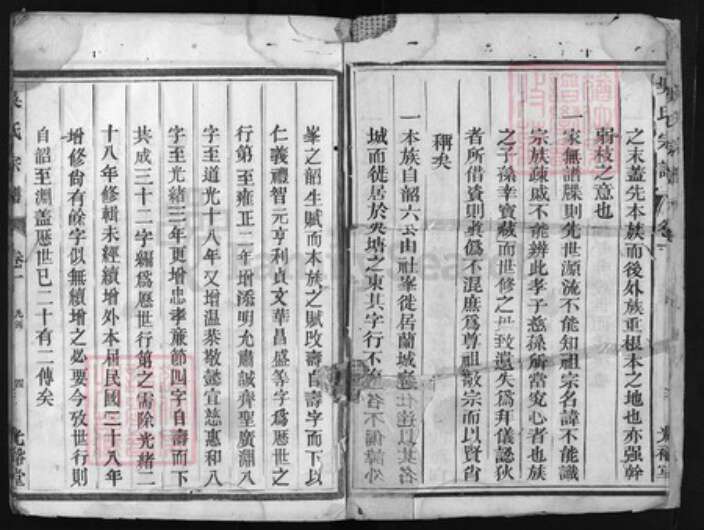 之末蓋先本族而後外族重根本之地也亦强幹
弱枝之意也
一家無譜牒則先世源流不能知祖宗名諱不能識
宗族疎戚不能辨此孝子慈孫所當究心者也族
之子孫幸寶藏而世修之毋致遺失為拜儀認狄
者所借資則眞僞不混庶為尊祖敬宗而以賢肖
稱矣
一本族自韶六公由社峯徙居蘭城
城而徙居於夾塘之東其字行不 名不偏諱外
峯之韶生賦而本族之賦改壽自壽字而下以
仁義禮智元亨利貞文華昌盛等字為歷世之
行第至雍正二年增添明允肅誠齊聖廣淵八
字至道光十八年又增温恭敬懿宣慈惠和八
字至光緒三年更增忠孝廉節四字自壽而下
共成三十二字編為歷世行第之需除光緒二
十八年修輯未經續增外本屆民國三十八年
增修尙有餘字似無續增之必要今攷世行則
自韶至淵蓋歷世已二十有二傳矣
吳氏宗譜
卷一
光裕堂